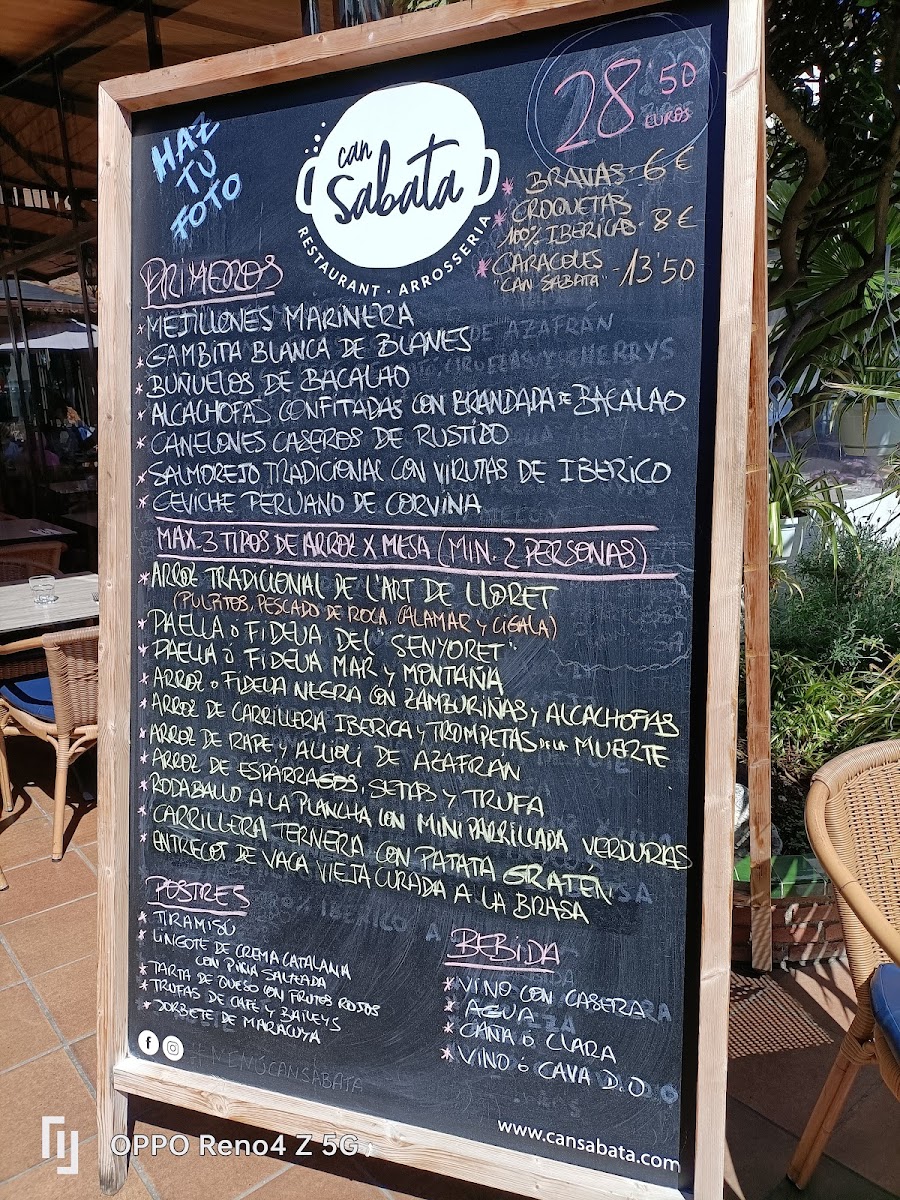 HAZ
TU
FOTO
can
Sabata
RESTAURANT · ARROSSERIA
28'50
EUROS
* BRAVAS - 6 €
* CROQUETAS
100% IBERICAS - 8 €
* CARACOLES
"CAN SABATA" - 13'50
PRIMEROS
* MEJILLONES MARINERA
* GAMBITA BLANCA DE BLANES
* BUÑUELOS DE BACALAO
* ALCACHOFAS CONFITADAS CON BRANDADA DE BACALAO
* CANELONES CASEROS DE RUSTIDO
* SALMOREJO TRADICIONAL CON VIRUTAS DE IBERICO
* CEVICHE PERUANO DE CORVINA
MAX. 3 TIPOS DE ARROZ X MESA (MIN. 2 PERSONAS)
* ARROZ TRADICIONAL DE L'ART DE LLORET
(PULPITOS, PESCADO DE ROCA, CALAMAR Y CIGALA)
* PAELLA O FIDEUA DEL "SENYORET"
* PAELLA Ó FIDEUA MAR Y MONTAÑA
* ARROZ O FIDEUA NEGRA CON ZAMBURIÑAS Y ALCACHOFAS
* ARROZ DE CARRILLERA IBERICA Y TROMPETAS DE LA MUERTE
* ARROZ DE RAPE Y ALLIOLI DE AZAFRAN
* ARROZ DE ESPÁRRAGOS, SETAS Y TRUFA
* RODABALLO A LA PLANCHA CON MINI PARRILLADA VERDURAS
* CARRILLERA TERNERA CON PATATA GRATÉN
* ENTRECOT DE VACA VIEJA CURADA A LA BRASA
POSTRES
* TIRAMISÚ
* LINGOTE DE CREMA CATALANA
CON PIÑA SALTEADA
* TARTA DE QUESO CON FRUTOS ROJOS
* TRUFAS DE CAFE Y BAILEYS
* SORBETE DE MARACUYA
BEBIDA
* VINO CON CASERA
* AGUA
* CAÑA Ó CLARA
* VINO Ó CAVA D.O
#MENUCANSABATA
www.cansabata.com
OPPO Reno4 Z 5G